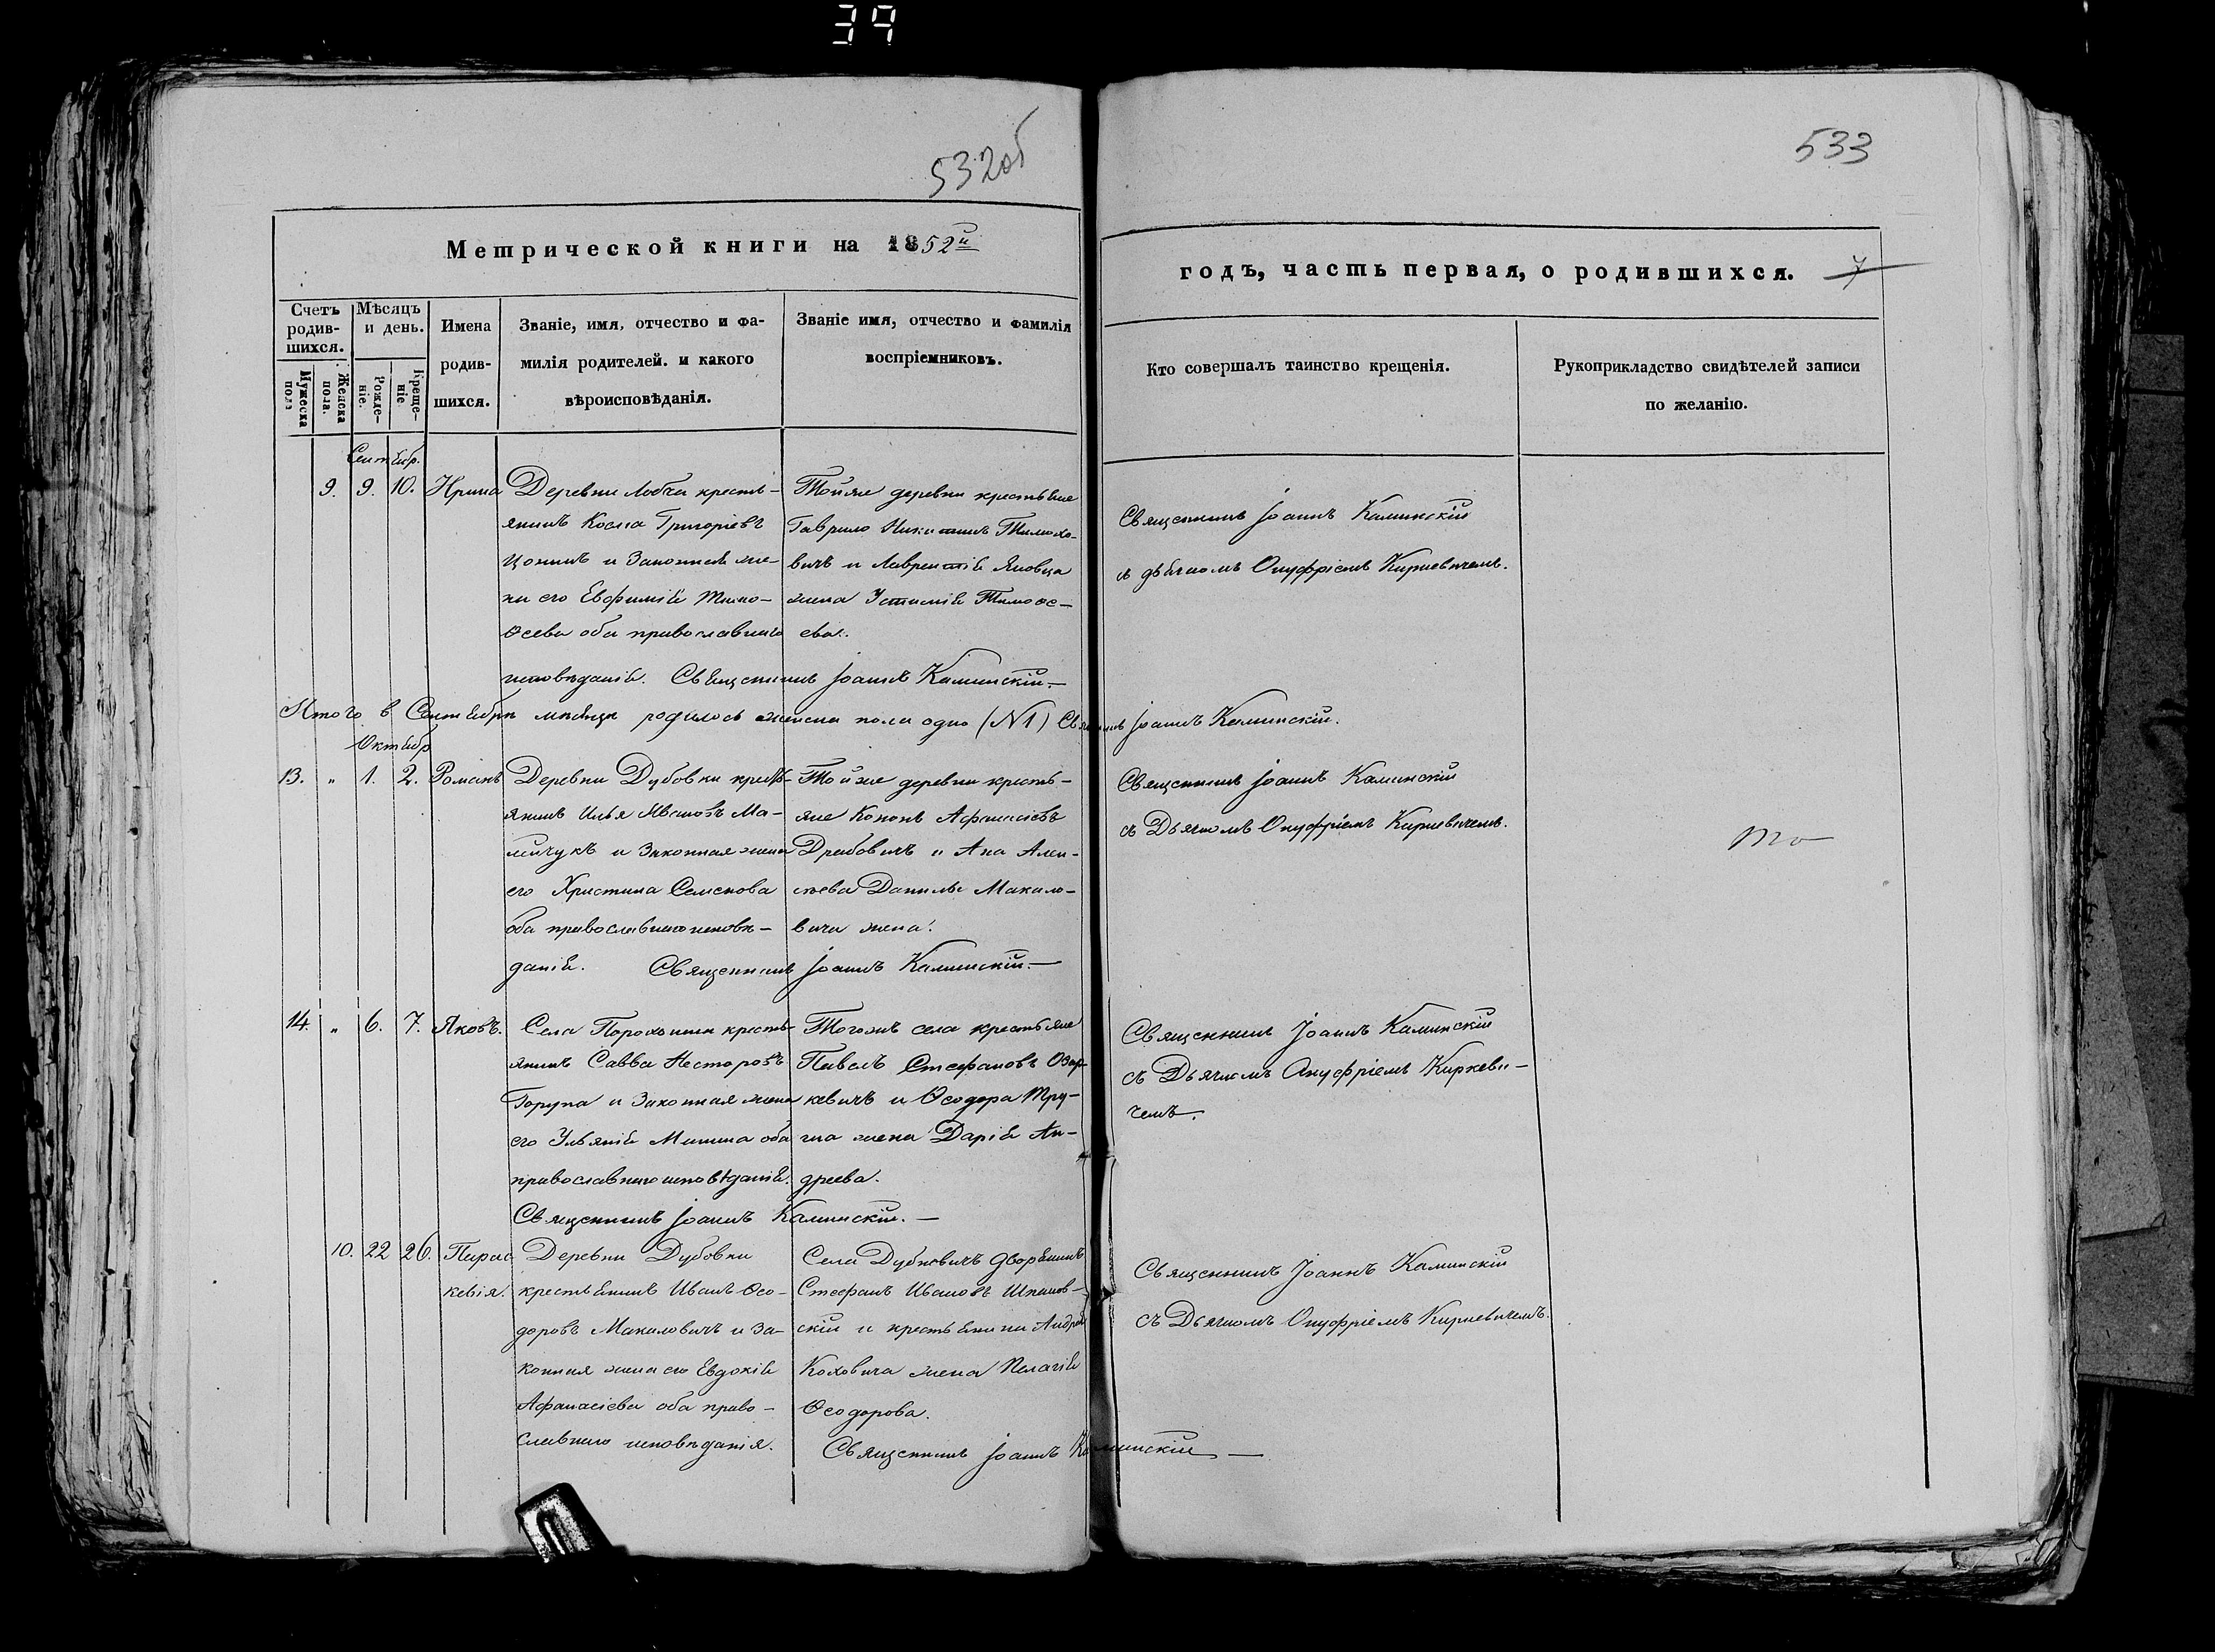 39
532об
533
Метрической книги на 1852й
годъ, часть первая, о родившихся. 7
Счетъ родив-шихся.
Мѣсяцъ и день.
Имена родив-шихся.
Званіе, имя, отчество и фа-
милія родителей. и какого
вѣроисповѣданія.
Званіе имя, отчество и фамилія
воспріемниковъ.
Кто совершалъ таинство крещенія.
Рукоприкладство свидѣтелей записи
по желанію.
Мужеска пола
Женска пола.
Рожде-ніе.
Креще-ніе
Сентябр.
9. 9. 10. Ирина
Деревни Лобча кресть-
янинъ Косма Григоріевъ
и Законная же-
на его Евфимія Тимо-
ѳеева оба православнаго
исповѣданія. Священникъ Іоаннъ Каминскій.—
Тойже деревни крестьяне
Гаврило Никитинъ Тимохо-
вичъ и Лаврентія Яковца
жена Устинія Тимоѳе-
ева.
Священникъ Іоаннъ Каминскій
съ дьячкомъ Онуфріемъ Киркевичемъ.
Итого в Сентябрѣ мѣсяцѣ родилось женска пола одно (№1) Іоаннъ Каминскій.
Октябр
13. " 1. 2. Романъ
Деревни Дубовки кресть-
янинъ Илья Ивановъ Ма-
и Законная жена
его Христина Семенова
оба православнаго исповѣ-
данія. Священникъ Іоаннъ Каминскій.—
Тойже деревни кресть-
яне Кононъ Афанасіевъ
Драбовичъ и Ана Алек-
сѣева Данилы Макало-
вича жена.
Священникъ Іоаннъ Каминскій
съ Дьячкомъ Онуфріемъ Киркевичемъ.
14. " 6. 7. Яковъ.
Села Порохонска кресть-
янинъ Савва Несторовъ
Горупа и Законная жена
его Ульянія Минина оба
православнаго исповѣданія.
Священникъ Іоаннъ Каминскій.—
Тогожъ села крестьяне
Павелъ Стефановъ Озар-
кевичъ и Ѳеодора
жена Дарія Ан-
дреева.
Священникъ Іоаннъ Каминскій
съ Дьячкомъ Онуфріемъ Киркеви-
чемъ.
10. 22 26. Парас
кевія.
Деревни Дубовки
крестьянинъ Иванъ Ѳео-
доровъ Макаловичъ и за-
конная жена его Евдокія
Афанасіева оба право-
славнаго исповѣданія.
Села Дубновичъ дворянинъ
Стефанъ Ивановъ Шпаков-
скій и крестьянина Андрея
Коховича жена Пелагія
Ѳеодорова.
Священникъ Іоаннъ Каминскій—
Священникъ Іоаннъ Каминскій
съ Дьячкомъ Онуфріемъ Киркевичемъ.